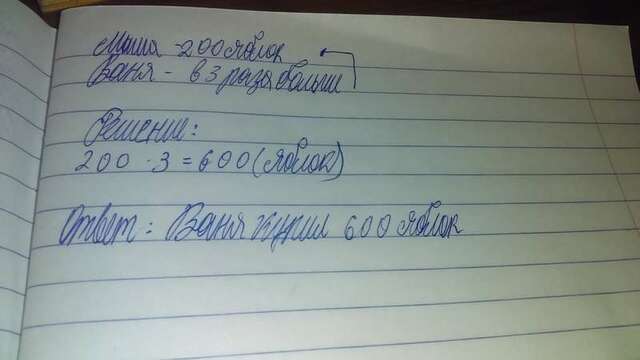 Маша - 200 яблок
Ваня - в 3 раза больше
Решение:
200 · 3 = 600 (яблок)
Ответ: Ваня купил 600 яблок